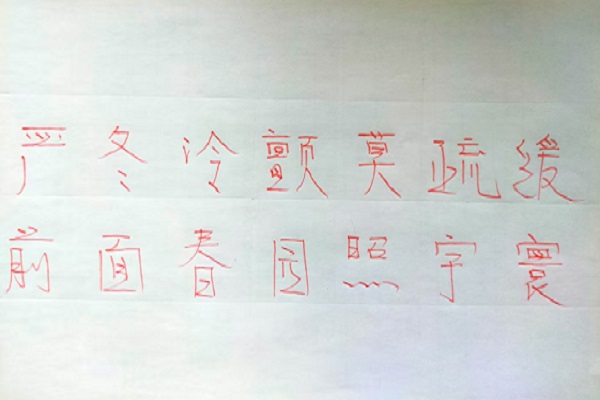 严冬冷颤莫疏缓
前面春园照宇寰